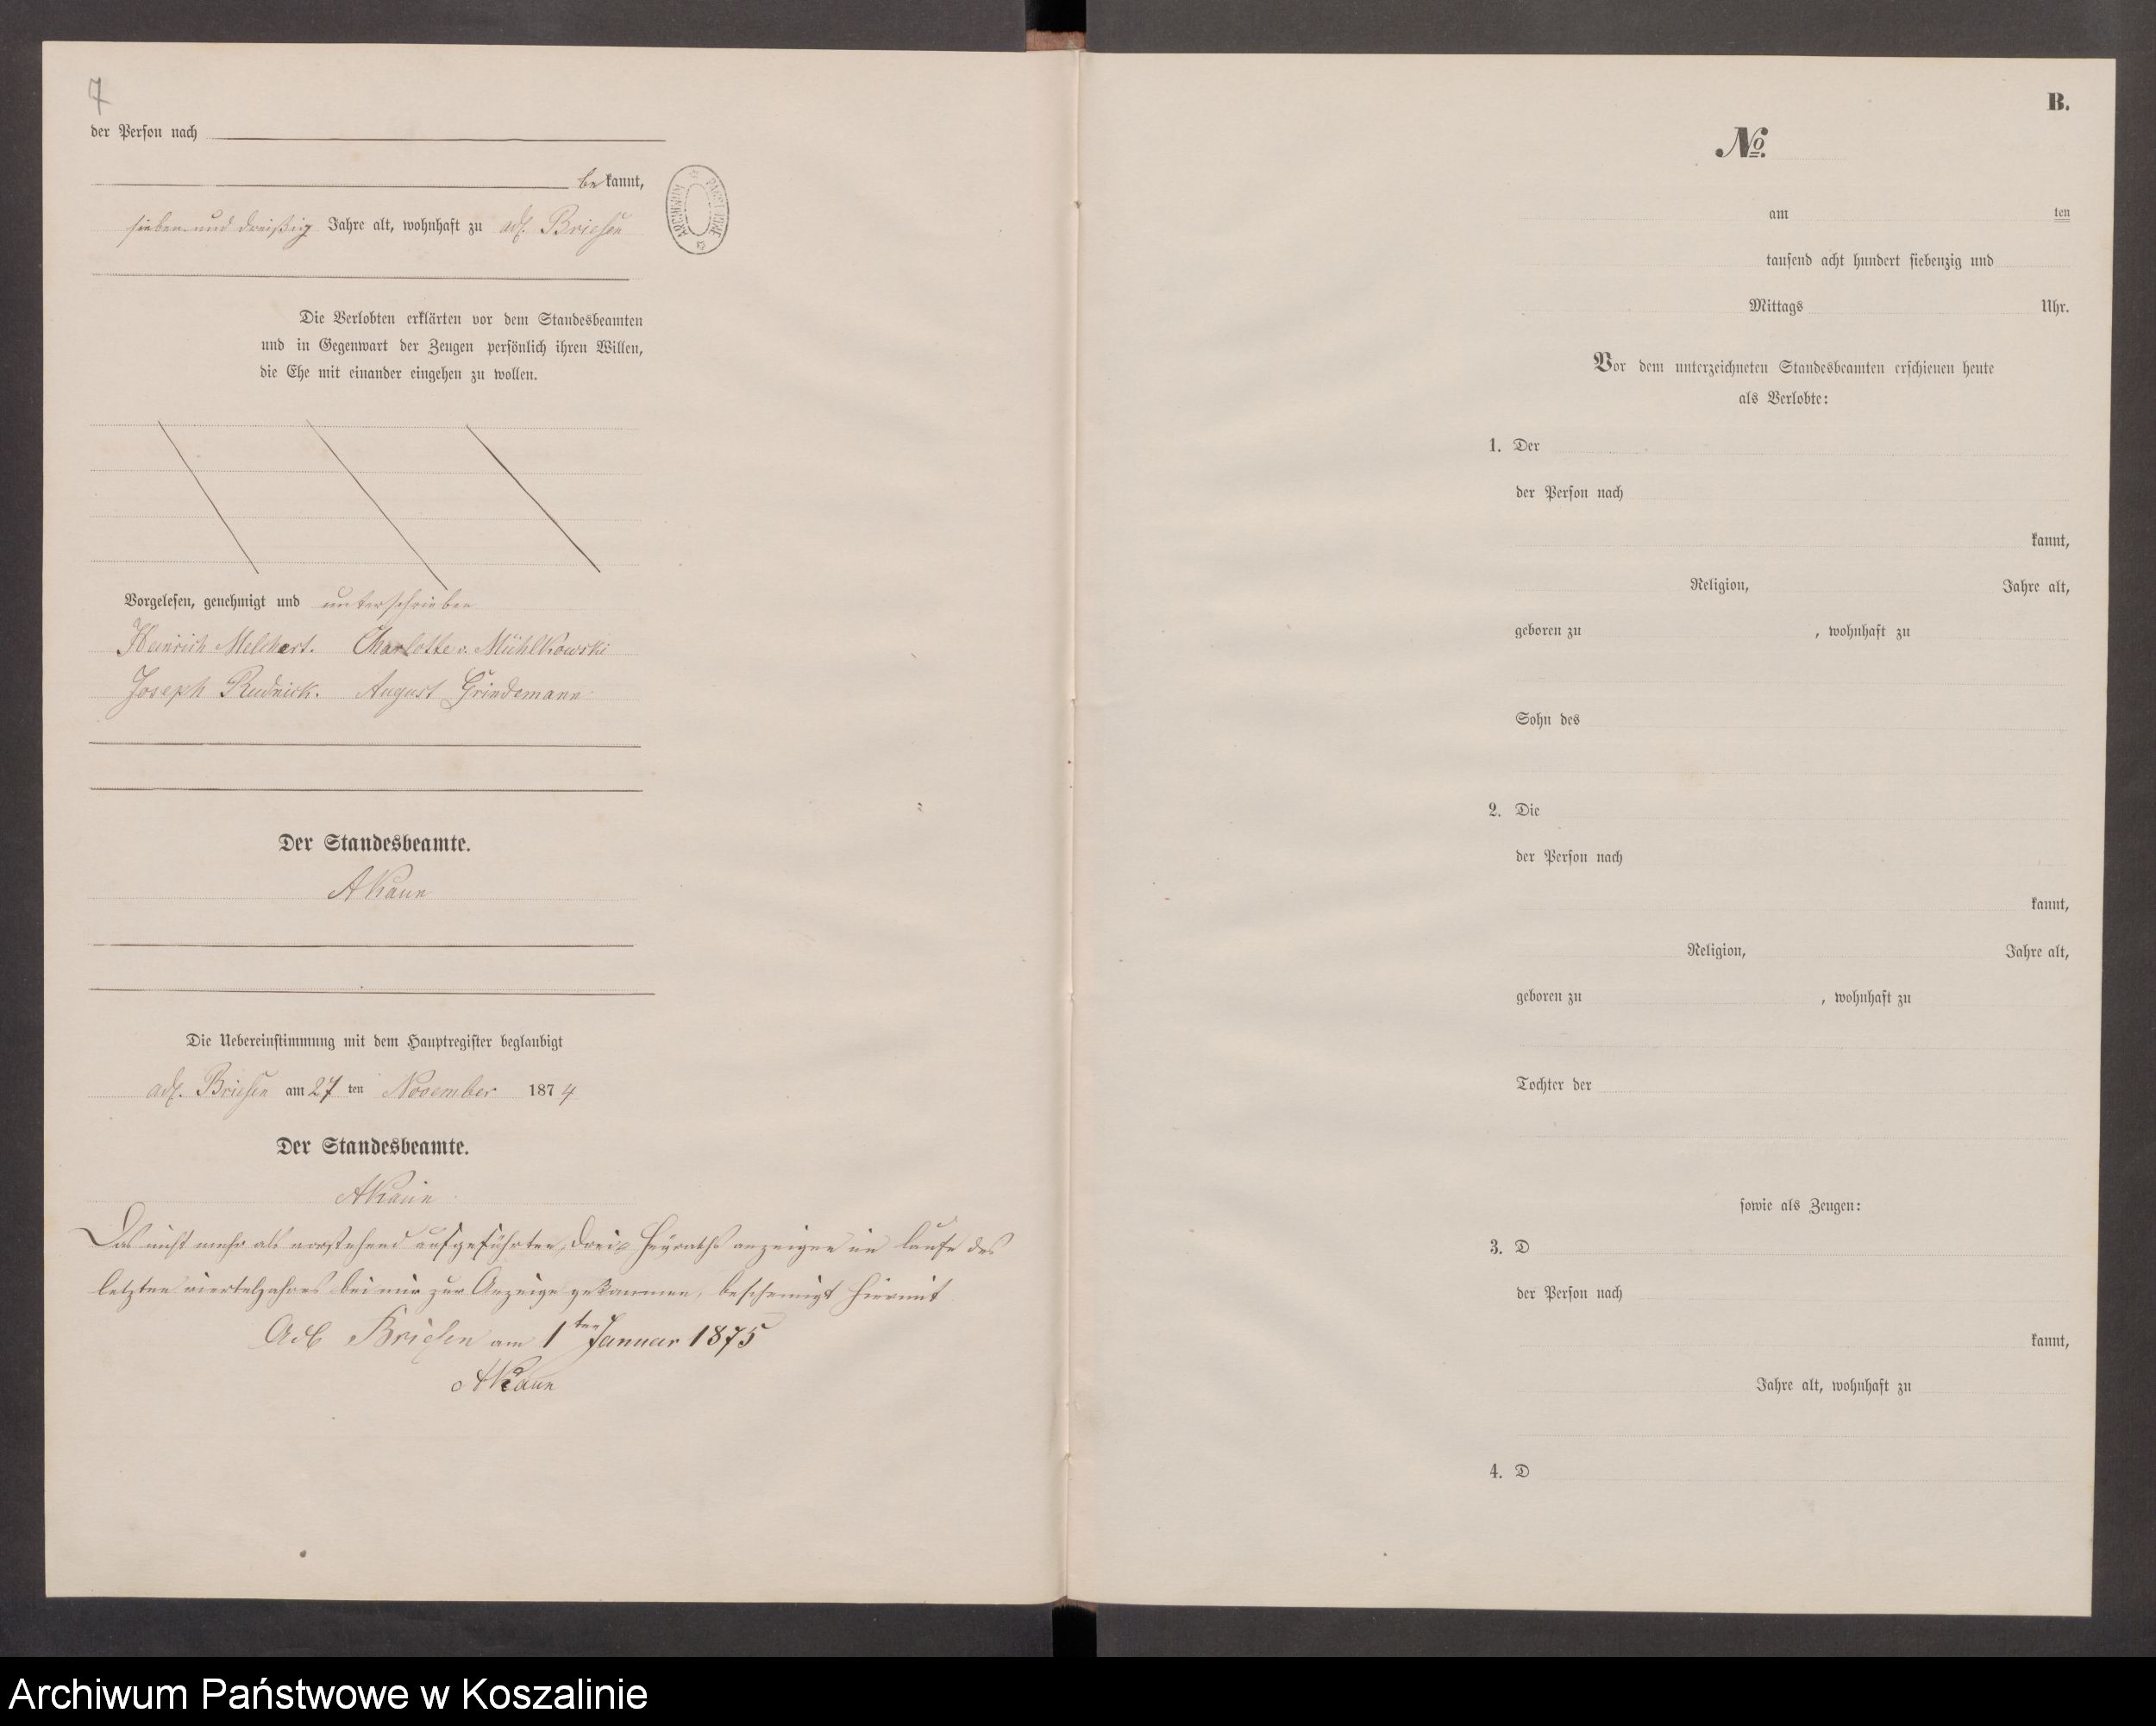 7
der Person nach
bekannt,
sieben und dreißig Jahre alt, wohnhaft zu adl. Briesen
ARCHIWUM PAŃSTWOWE
Die Verlobten erklärten vor dem Standesbeamten
und in Gegenwart der Zeugen persönlich ihren Willen,
die Ehe mit einander eingehen zu wollen.
Vorgelesen, genehmigt und unterschrieben
Heinrich Melchert. Charlotte v. Mühlkowski
Joseph Rudnick. August Grindemann
Der Standesbeamte.
AKaun
Die Uebereinstimmung mit dem Hauptregister beglaubigt
adl. Briesen am 27 ten November 1874
Der Standesbeamte.
AKaun
Das nicht mehr als vorstehend aufgeführten, drei Heyraths anzeigen im laufe des
letzten vierteljahres bei mir zur Anzeige gekommen, bescheinigt hiermit
Adl Briesen am 1ten Januar 1875
AKaun
B.
No.
am ten
tausend acht hundert siebenzig und
Mittags Uhr.
Vor dem unterzeichneten Standesbeamten erschienen heute
als Verlobte:
1. Der
der Person nach
kannt,
Religion, Jahre alt,
geboren zu , wohnhaft zu
Sohn des
2. Die
der Person nach
kannt,
Religion, Jahre alt,
geboren zu , wohnhaft zu
Tochter der
sowie als Zeugen:
3. D
der Person nach
kannt,
Jahre alt, wohnhaft zu
4. D
Archiwum Państwowe w Koszalinie